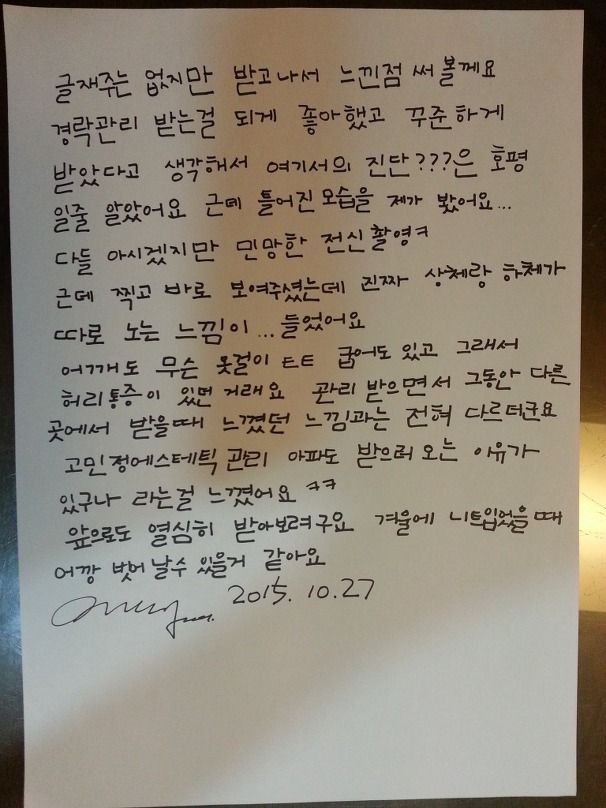 글재주는 없지만 받고나서 느낀점 써 볼께요
경락관리 받는걸 되게 좋아했고 꾸준하게
받았다고 생각해서 여기서의 진단???은 호평
일줄 알았어요 근데 틀어진 모습을 제가 봤어요...
다들 아시겠지만 민망한 전신촬영ㅋ
근데 찍고 바로 보여주셨는데 진짜 상체랑 하체가
따로 노는 느낌이... 들었어요
어깨도 무슨 옷걸이 ㅌㅌ 굽어도 있고 그래서
허리통증이 있던 거래요 관리 받으면서 그동안 다른
곳에서 받을때 느꼈던 느낌과는 전혀 다르더군요
고민정에스테틱 관리 아파도 받으러 오는 이유가
있구나 라는걸 느꼈어요 ㅋㅋ
앞으로도 열심히 받아보려구요 겨울에 니트입었을때
어깡 벗어날수 있을거 같아요
2015. 10.27